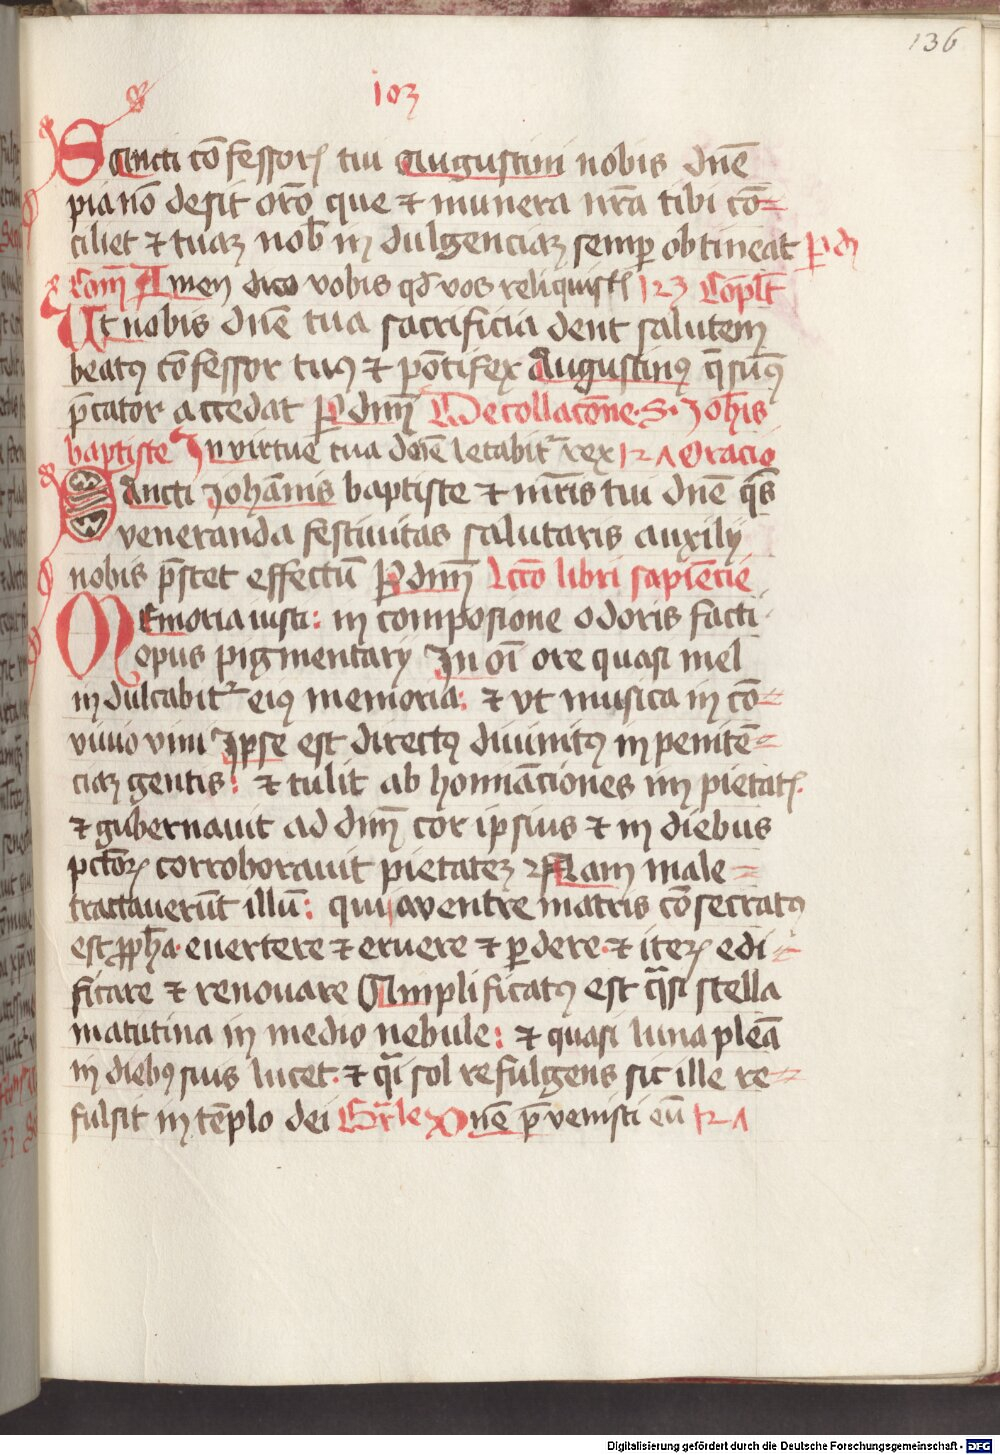 136
103
Sancti cōfessorꝭ tui augustini nobis dn̄e
pia nō desit orō que ⁊ munera nr̄a tibi cō=
ciliet ⁊ tuaꝫ nob̄ in dulgenciaꝫ semꝑ obtineat P dm̄
Com̄ Amen dico vobis qđ vos reliquistꝭ 123 Cōpl̄t
Ut nobis dn̄e tua sacrificia dent salutem
beatꝰ cōfessor tuꝰ ⁊ pōtifex Augustinꝰ q̄sum̄ꝰ
p̄cator accedat P dnm̄ Decollacōne · S · Joh̄is
baptiste In virtue tua dn̄e letabitᷣ rex 121 Oracio
Sancti Johānis baptiste ⁊ mr̄is tui dn̄e q̄s
veneranda festiuitas salutaris auxilij
nobis p̄stet effectū P dnm̄ Lctō libri sapiēcie
Memoria iusti: in composione odoris facti
opus pigmentarij In oī ore quasi mel
in dulcabitᷣ eiꝰ memoria: ⁊ vt musica in cō=
viuio vini Ipse est directꝰ diuinitꝰ in penitē=
ciaꝫ gentis: ⁊ tulit ab hominaciones im pietatꝭ·
⁊ gubernauit ad dnm̄ cor ipsius ⁊ in diebus
pctōrꝭ corroborauit pietateꝫ Nam male =
tractauerūt illū: qui a ventre matris cōsecratꝰ
est ꝓph̄a · euertere ⁊ eruere ⁊ ꝑdere · ⁊ iterꝭ edi =
ficare ⁊ renouare Amplificatꝰ est q̄si stella
matutina in medio nebule: ⁊ quasi luna pleā
in diebꝰ suis lucet · ⁊ q̄i sol refulgens sic ille re=
fulsit in tēplo dei Gr̄le Dn̄e p̄venisti eū 121
Digitalisierung gefördert durch die Deutsche Forschungsgemeinschaft - DFG